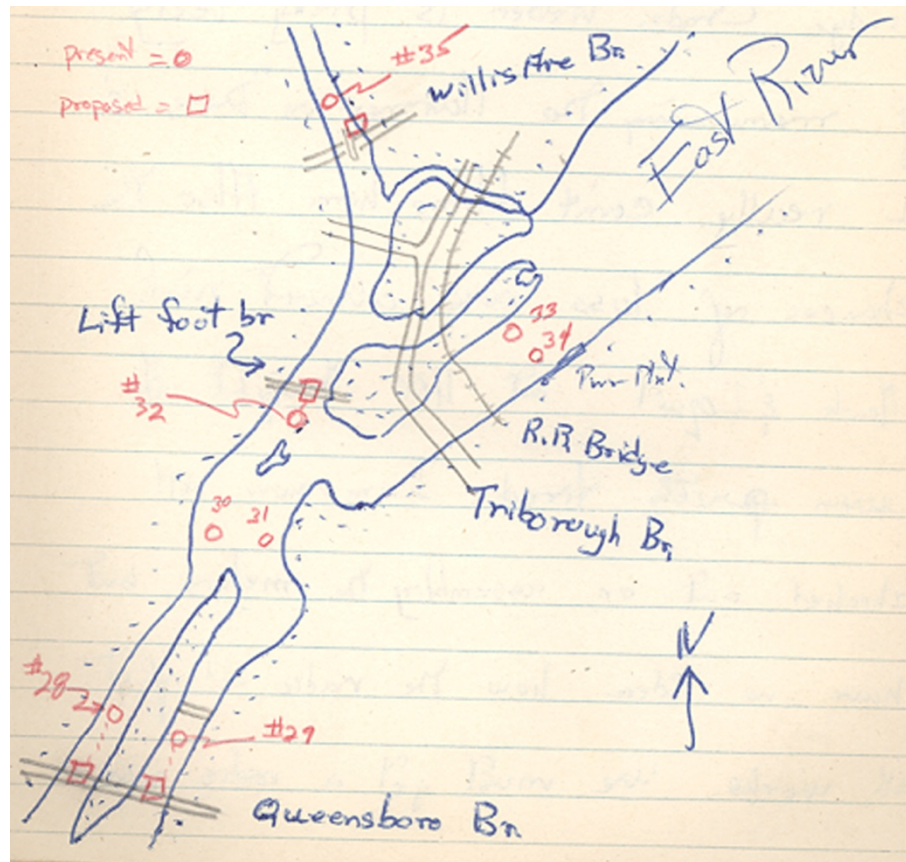 present = o
proposed = □
#35
Willis Ave Br.
East River
Lift foot br
33
34
Pwr Plnt.
#32
R.R. Bridge
Triborough Br.
30
31
N
#28
#29
Queensboro Br.